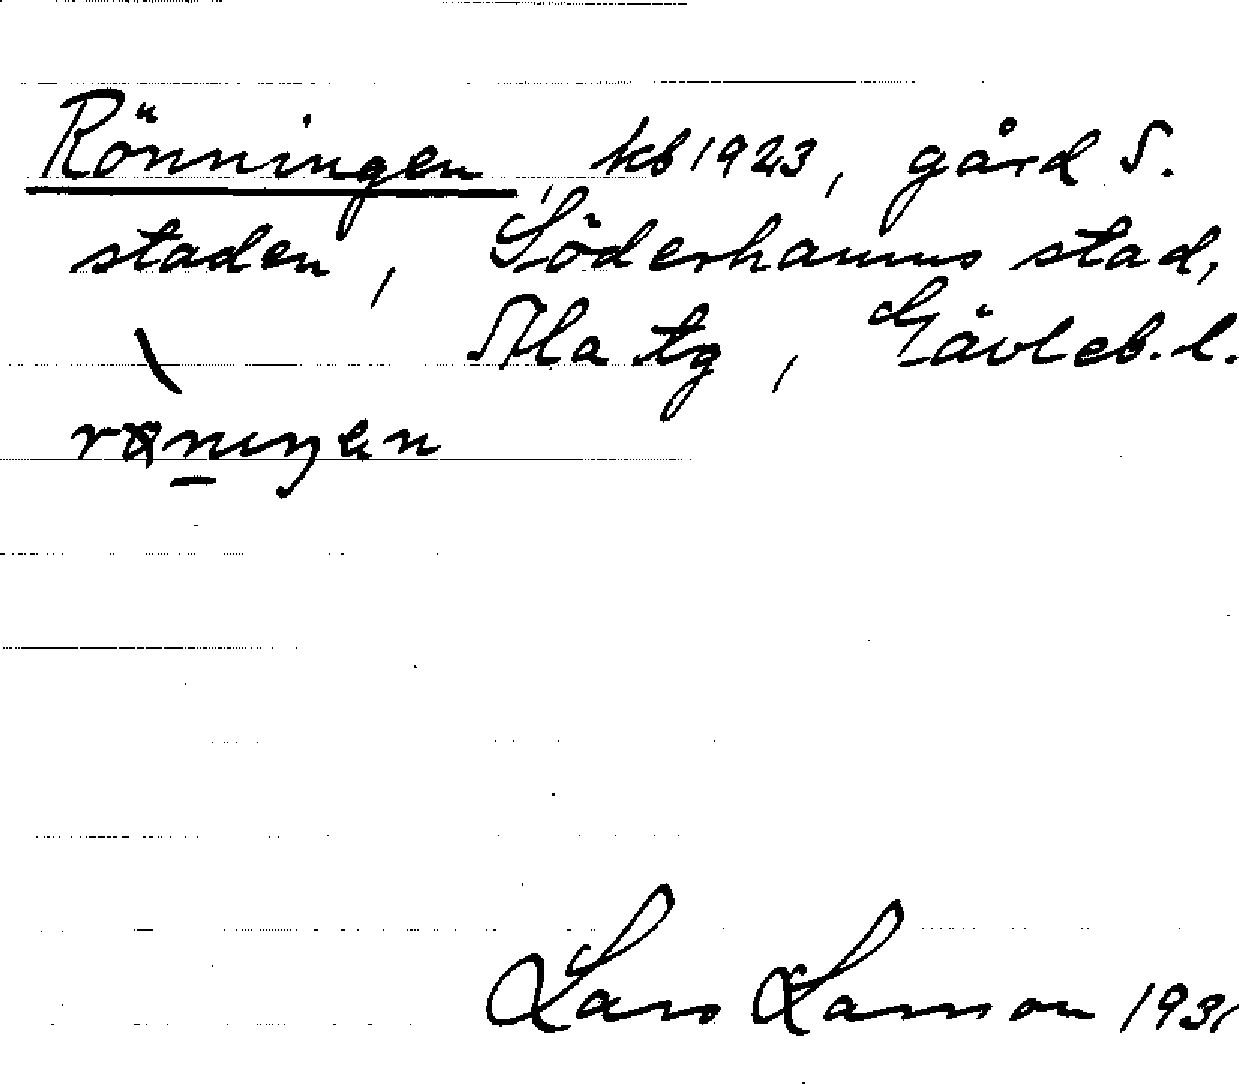 Rönningen, kb 1923, gård S.
staden, Söderhamns stad,
Ala tg, Gävleb. l.
Lars Larsson 193